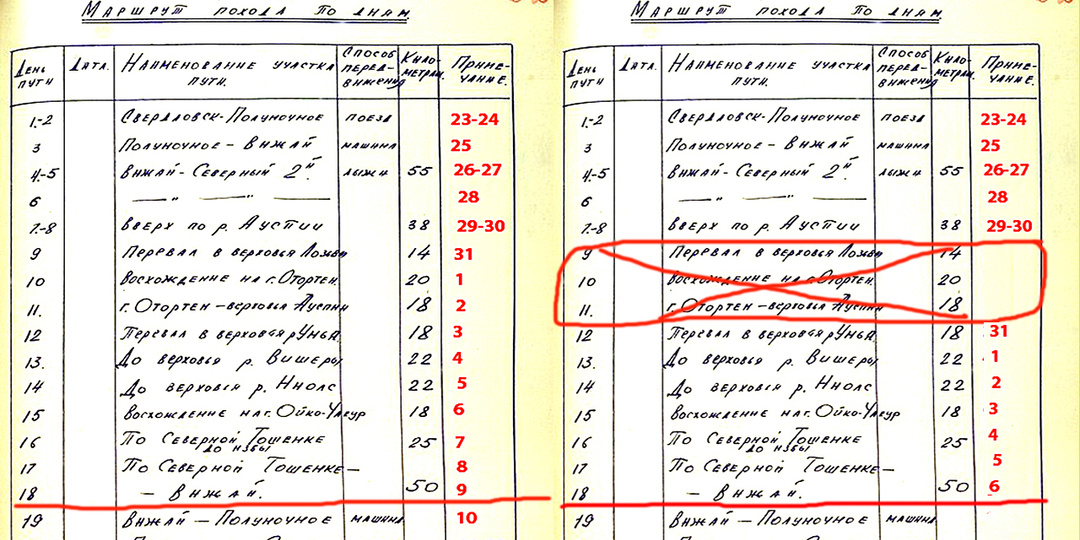 Маршрут похода по дням.
День пути Дата. Наименование участка пути. Способ передвижения Километраж. Примечание.
1-2 Свердловск-Полуночное поезд 23-24
3 Полуночное - Вижай машина 25
4-5 Вижай-Северный 2й. лыжи 55 26-27
6 — " — — 28
7-8 Вверх по р. Ауспии 38 29-30
9 Перевал в верховья Лозьвы 14 31
10 Восхождение на г. Отортен. 20 1
11. г. Отортен - верховья Ауспии 18 2
12 Перевал в верховья р Унья. 18 3
13. До верховья р. Вишеры 22 4
14 До верховья р. Ниолс 22 5
15 Восхождение на г. Ойко-Чакур 18 6
16 По Северной Тошенке до избы 25 7
17 По Северной Тошенке — 8
18 — Вижай. 50 9
19 Вижай — Полуночное машина 10
Маршрут похода по дням.
День пути Дата. Наименование участка пути. Способ передвижения Километраж. Примечание.
1-2 Свердловск-Полуночное поезд 23-24
3 Полуночное - Вижай машина 25
4-5 Вижай-Северный 2й. лыжи 55 26-27
6 — " — — 28
7-8 Вверх по р. Ауспии 38 29-30
9 Перевал в верховья Лозьвы 14
10 Восхождение на г. Отортен. 20
11. г. Отортен - верховья Ауспии 18
12 Перевал в верховья р Унья. 18 31
13. До верховья р. Вишеры 22 1
14 До верховья р. Ниолс 22 2
15 Восхождение на г. Ойко-Чакур 18 3
16 По Северной Тошенке до избы 25 4
17 По Северной Тошенке — 5
18 — Вижай. 50 6
19 Вижай — Полуночное машина